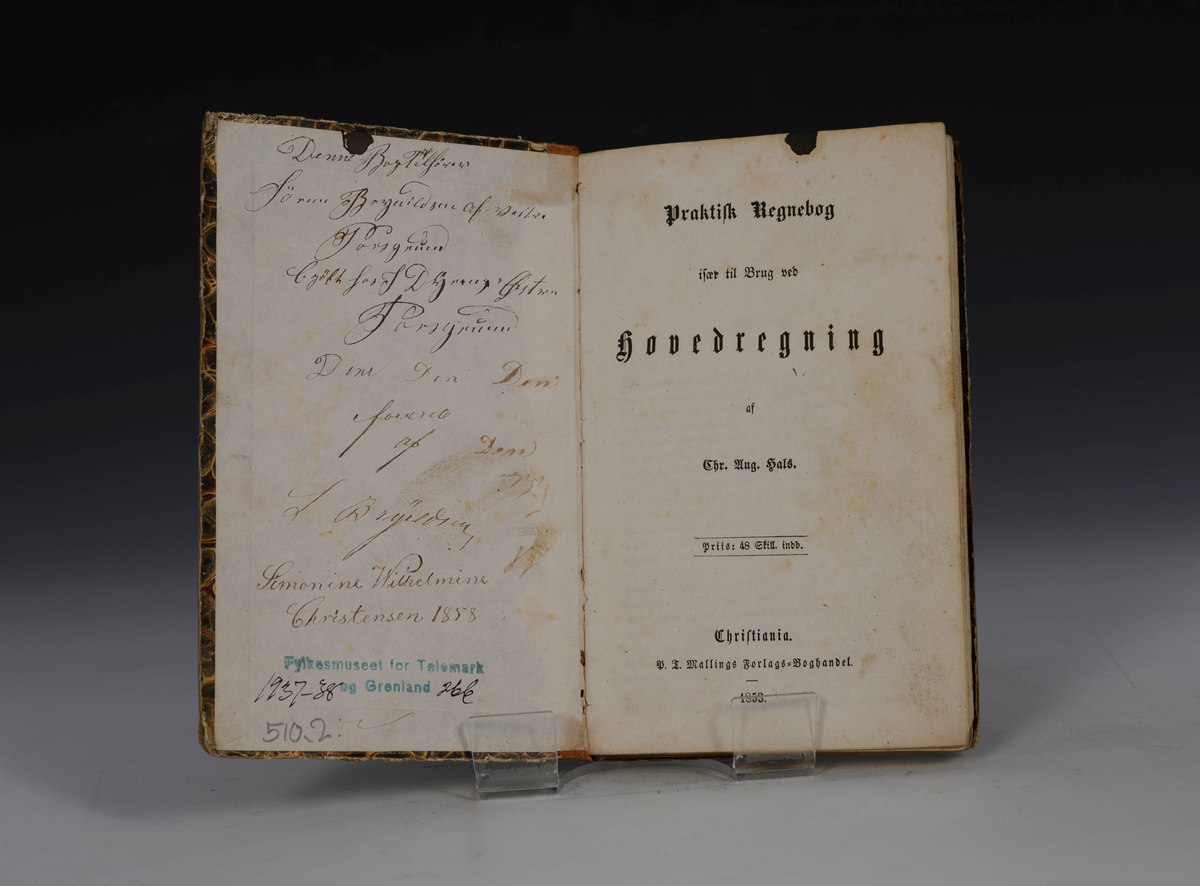 Denne Bog Tilhører
Sören Brynildsen af Vestre
Porsgrund
Kjöbt hos Østre
Porsgrund
Den Den
foræret
af Den
L Brynildsen
Simonine Wilhelmine
Christensen 1858
Fylkesmuseet for Telemark
og Grenland
1937-38 266
510.2.
Praktisk Regnebog
især til Brug ved
Hovedregning
af
Chr. Aug. Hals.
Priis: 48 Skill. indb.
Christiania.
P. T. Mallings Forlags-Boghandel.
1853.